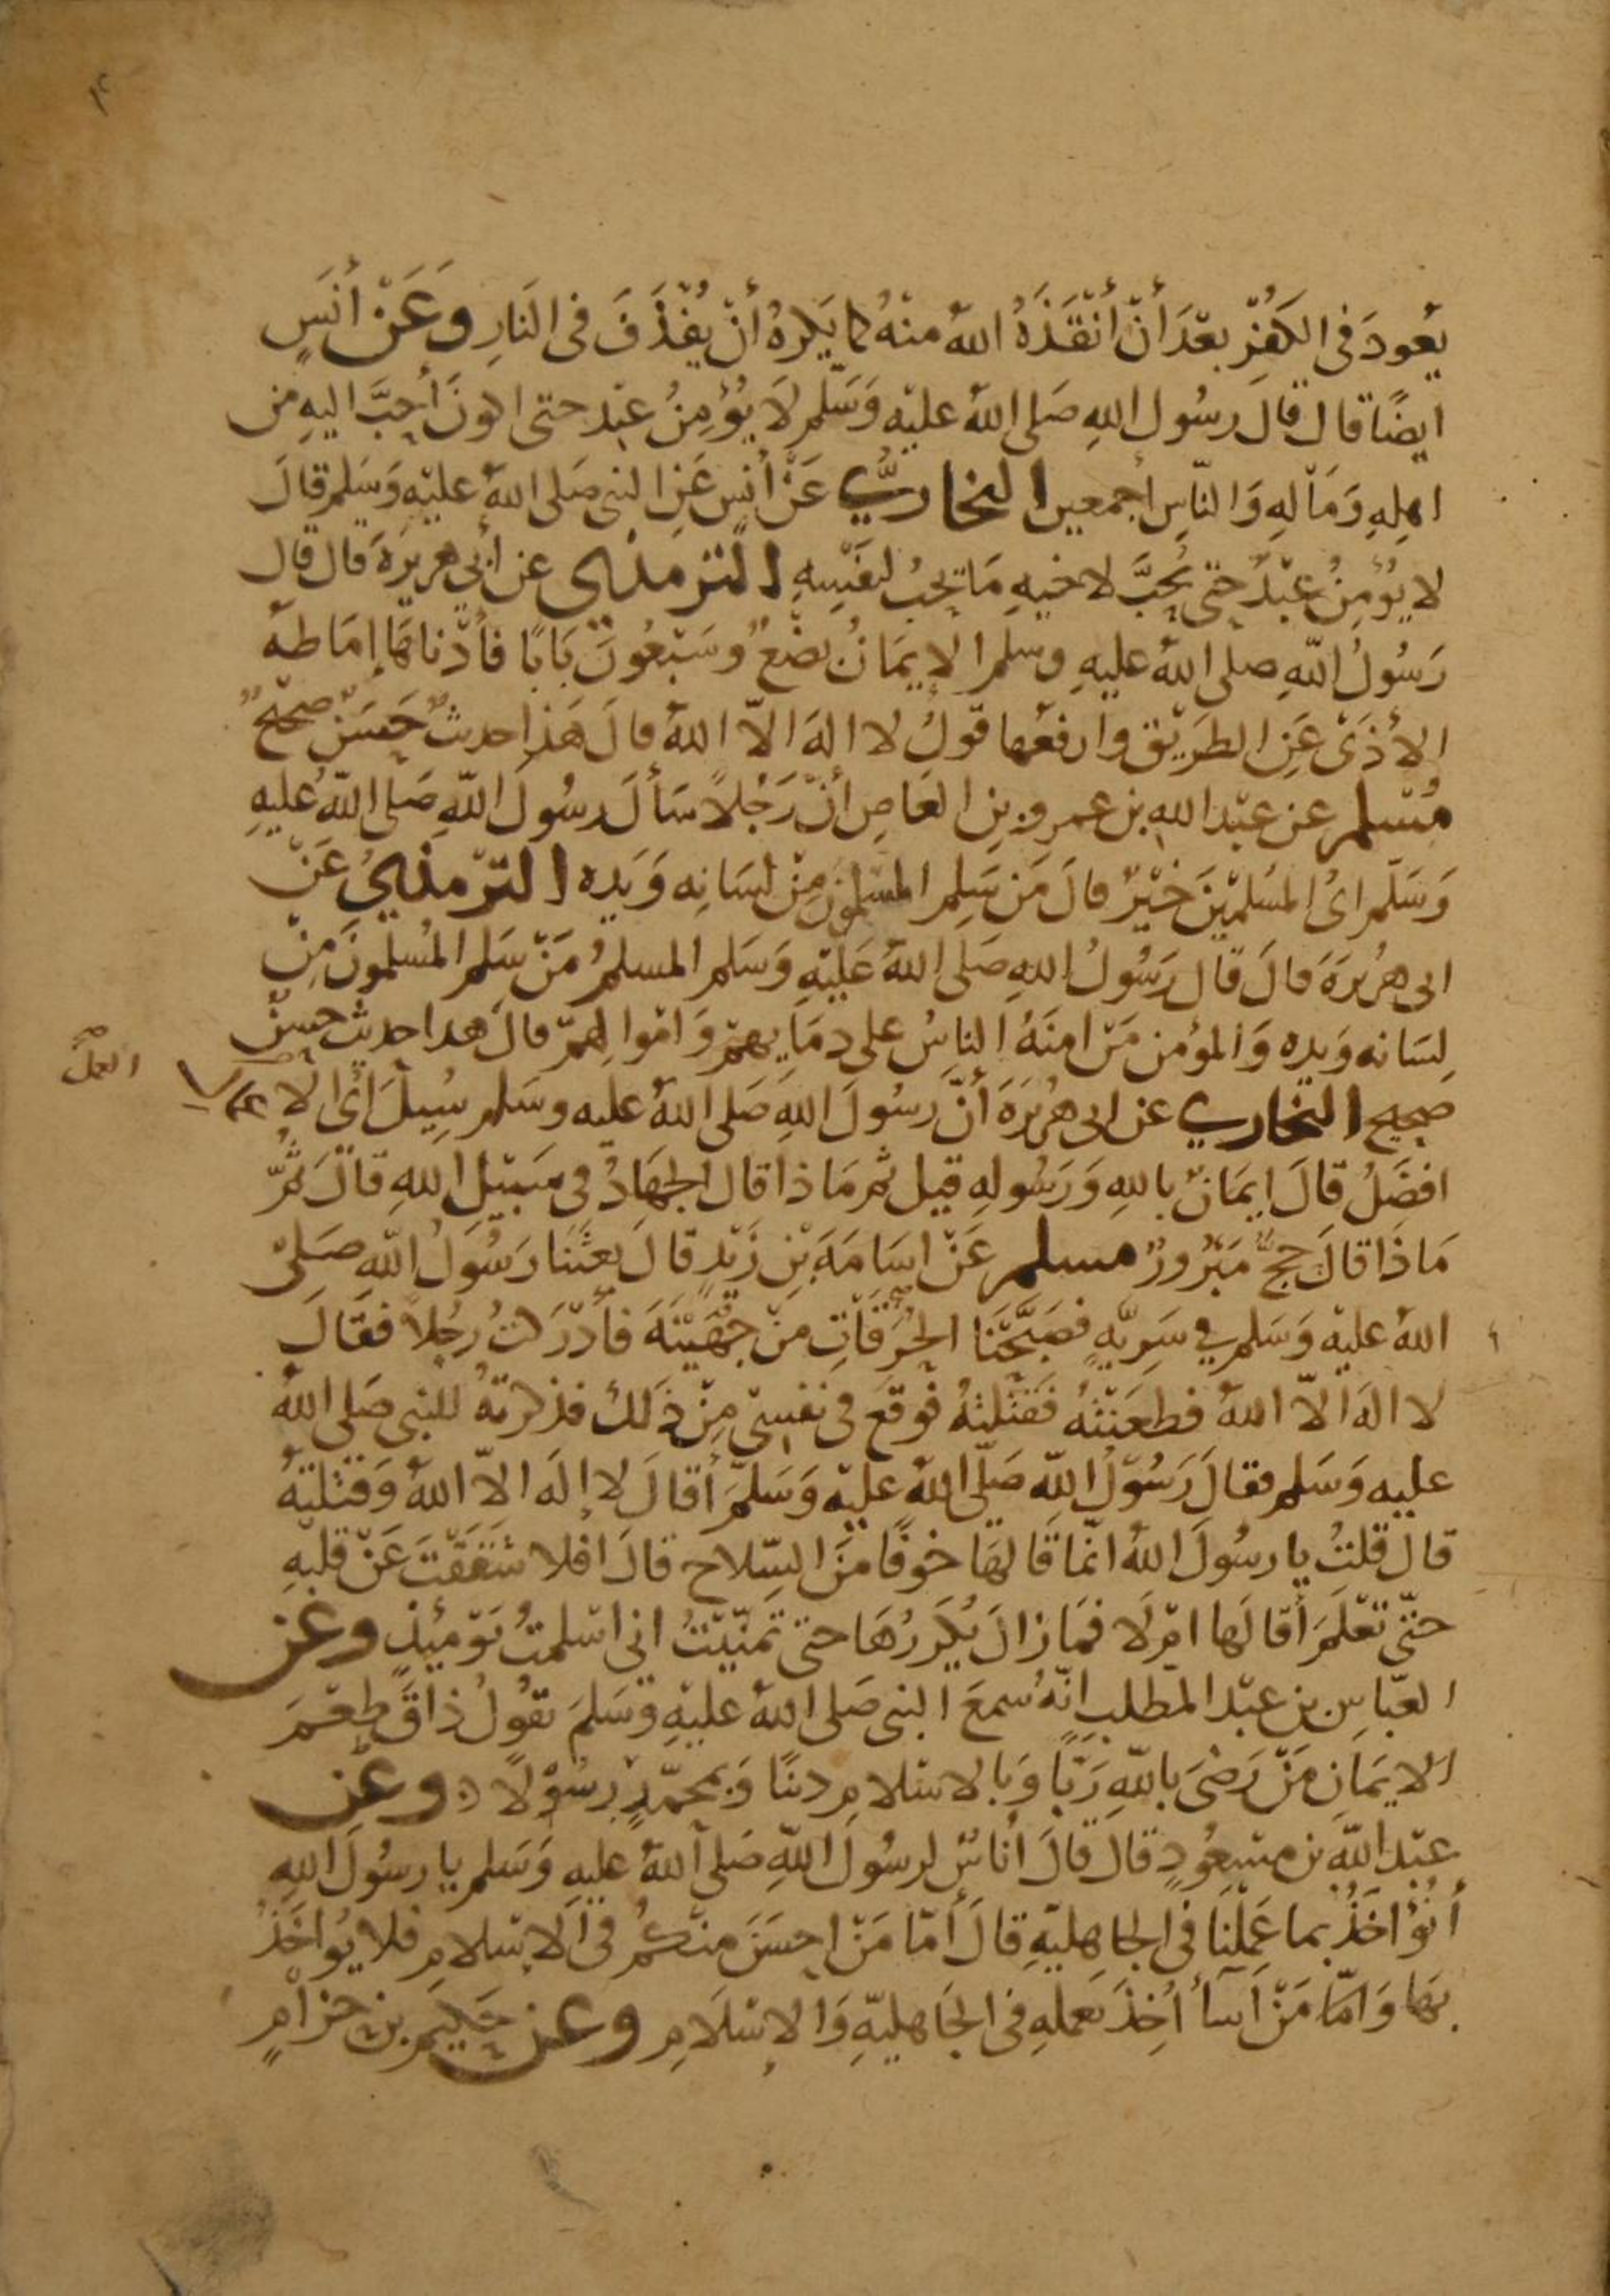 ٣
يَعُودَ فى الكُفْرِ بعْدَ أنْ أنْقَذَهُ اللهُ منْهُ كما يَكرهُ أنْ يُقْذَفَ فى النَارِ وعَنْ أنَسٍ
ايضًا قال قالَ رسُول اللهِ صَلى اللهُ عليْه وَسَلم لَا يُؤمِنُ عبْد حتى اكونَ أحِبَّ اليهِ من
اهلِهِ وَمَالهِ وَالنّاسِ أجمعين البخاريُّ عَنْ أنسٍ عَنِ النبى صَلى اللهُ عليْهِ وَسَلم قالَ
لا يُؤمِنُ عبْدٌ حتى يُحِبَّ لاخيهِ مَا يحِبُ لنفَسِهِ الترمذي عن أبى هريرَةَ قال قال
رَسُولُ اللّهِ صلى اللهُ عليهِ وسلم الإيمَانُ بضْعٌ وسَبْعُونَ بَابًا فأدْناهَا إمَاطةُ
الأذَىْ عَنِ الطرَيْق وأرفعُها قوْلُ لا الهَ الّا اللهُ قالَ هَذا حديثٌ حَسَنٌ صَحيحٌ
مُسْلم عن عبْد اللهِ بن عمرو بن العَاصِ أنّ رَجُلاً سَألَ رسُولَ اللّهِ صَلى اللّهُ عليهِ
وَسَلّم اىُ المسُلمِيْنَ خيْرٌ قالَ مَن سَلِم المسْلمُونَ مِنْ لسَانِه وَيَدِه الترْمذيُ عَنْ
ابى هرُيرَةَ قالَ قَالَ رَسُولُ اللهِ صَلى اللهُ عَليْهِ وَسَلم المسلمُ مَنْ سَلِم المُسلمونَ مِنْ
لِسَانه وَيدِه وَالمؤمن مَنْ امنَهُ الناسُ على دمَايهمْ وَامْوالِهمْ قالَ هذا حديث حسنٌ
صحيح البخاري عن ابى هُريَرَةَ أنّ رسُولَ اللهِ صَلى اللهُ عليه وسَلم سُيِلَ أىُ الا
العمل صح
افضَلُ قالَ ايمَانٌ باللهِ وَرَسُولِهِ قيل ثم مَاذا قال الجهَادُ فى سَبيْلِ اللهِ قالَ ثُمَّ
مَاذَا قالَ حجٌّ مَبْرُورٌ مسلم عَنْ اسَامَةَ بْنِ زَيْدٍ قالَ بعثَنَا رَسُولُ اللّهِ صَلىْ
اللهُ عليْه وَسَلم في سَرِيّةٍ فصَبَّحْنَا الحُرَقَاتِ منْ جُهَيْنَةَ فأدْرَكتُ رجُلاً فقَالَ
لا الهَ الّا اللهُ فطعَنْتُه فَقتَلتهُ فوَقعَ فى نفسِىْ مِنْ ذَلك فذكرتهُ للنبى صَلى اللهُ
عليه وَسَلم فقالَ رَسُوْلُ اللّهِ صَلّى اللهُ عليْه وَسَلّمَ أقالَ لا إلَه الّا اللهُ وَقتْلتَهُ
قال قلتُ يا رسُولَ اللهُ انّمَا قَالَهَا خوْفًا منَ السِّلاح قالَ افلا شَقَقْتَ عَنْ قلبِهِ
حتّى تعْلَمَ أقالَها امْ لَا فمَا زالَ يُكَررُهَا حتى تمَنّيْتُ انى اسْلمتُ يَوْمئِذٍ وعَن
العبّاسِ بن عبْد المطّلبِ انّهُ سمعَ النبى صَلى اللهُ عليْهِ وَسَلمَ يقوُلُ ذاقَ طعْمَ
الايمَانِ مَنْ رَضىَ باللّهِ رَبّاً وَبالاسْلامِ دينًا وَبمحمّدٍ رسُوْلًا وعَن
عبْد اللّهِ بن مسْعُودٍ قالَ قالَ أناسٌ لرسُول اللّهِ صَلى اللهُ عليهِ وَسَلم يا رسُولَ اللهِ
أنُؤاخَذُ بما عَمِلْنَا فى الجاهليّةِ قالَ أمّا مَنْ احسَنَ منكُم فى الاسْلامِ فلا يُواخَذُ
بهَا وَامّا مَنْ أسَأ أُخِذَ بعَملهِ فى الجَاهليّةِ وَالإسْلَامِ وعن حَكيم بن حزامٍ